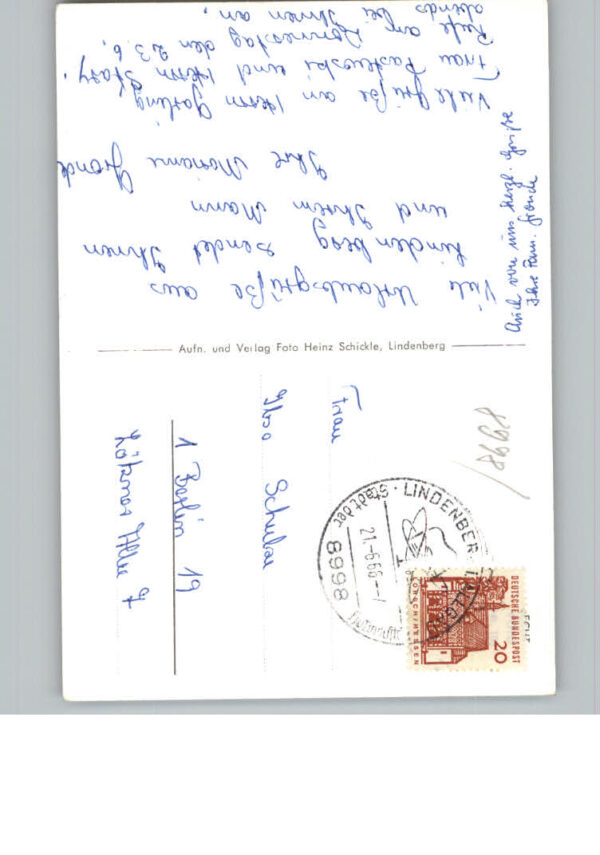 Viele Urlaubsgrüße aus
Lindenberg sendet Ihnen
und Ihrem Mann
Ihre Marianne Gronde
Viele Grüße an Herrn
Frau und Herrn
Rufe am Donnerstag den 23.6.
abends bei Ihnen an.
Auch von uns herzl. Grüße
Ihre Fam. Gronde
Aufn. und Verlag Foto Heinz Schickle, Lindenberg
Frau
Ilse Schulze
1 Berlin 19
Allee 7
8998
LINDENBERG i. ALLGÄU
Stadt der
21.-6.66.--7
8998
DEUTSCHE BUNDESPOST
20
LORSCH/HESSEN